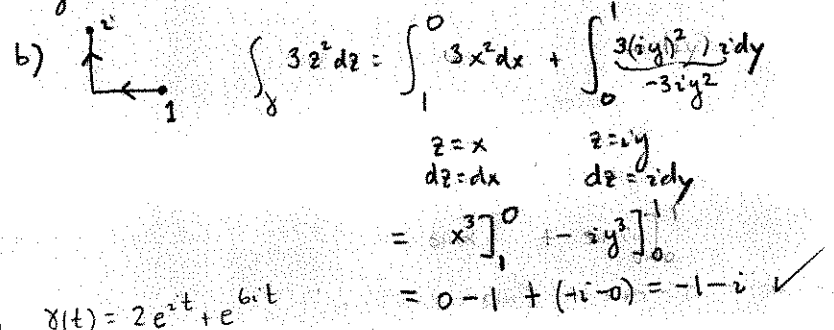 b) i 1 ∫_γ 3z²dz = ∫_1^0 3x²dx + ∫_0^1 3(iy)² ) idy
-3iy²
z=x z=iy
dz=dx dz=idy
= x³]_1^0 + - iy³]_0^1
= 0-1 + (-i-0) = -1-i ✓
γ(t) = 2e^{it} + e^{6it}